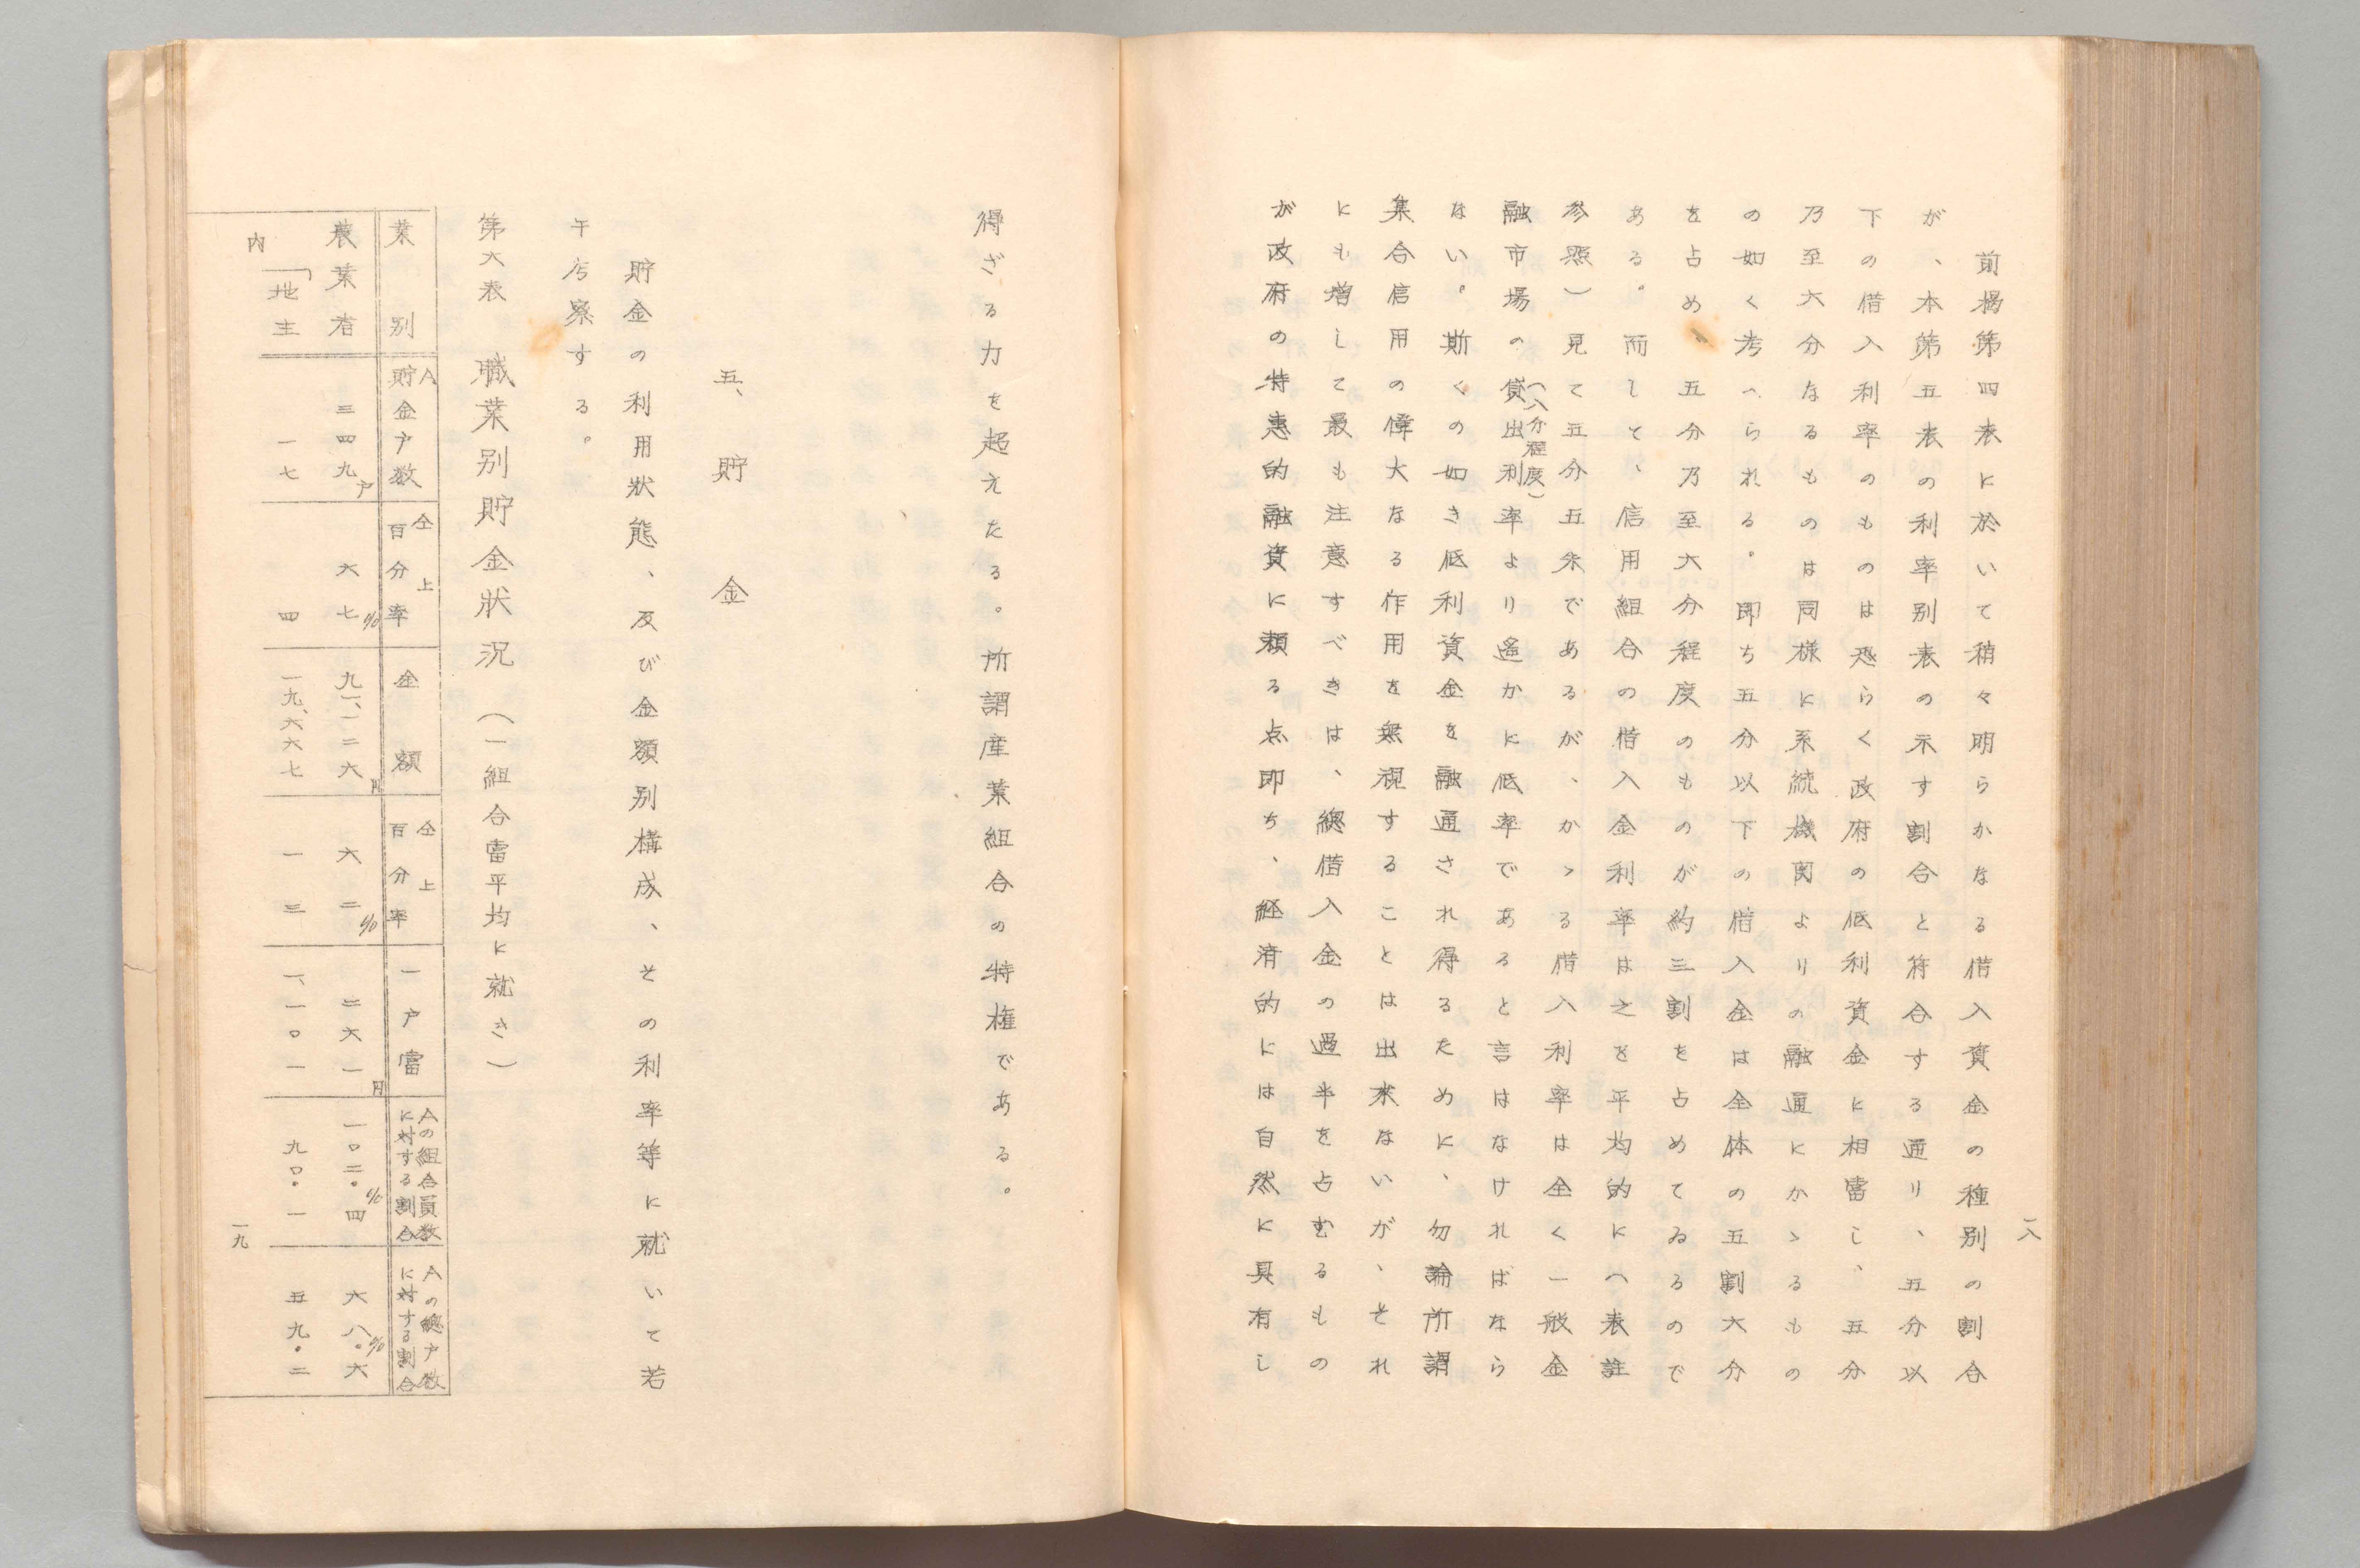 前掲第四表に於いて稍々明らかなる借入資金の種別の割合
が、本第五表の利率別表の示す割合と符合する通り、五分以
下の借入利率のものは恐らく政府の低利資金に相當し、五分
乃至六分なるものは同様に系統機関よりの融通にかゝるもの
の如く考へられる。即ち五分以下の借入金は全体の五割六分
を占め、五分乃至六分程度のものが約三割を占めてゐるので
ある。而して、信用組合の借入金利率は之を平均的に(表註
参照)見て五分五朱であるが、かゝる借入利率は全く一般金
融市場の貸出利率より遙かに低率であると言はなければなら
(八分程度)
ない。斯くの如き低利資金を融通され得るために、勿論所謂
集合信用の偉大なる作用を無視することは出来ないが、それ
にも増して最も注意すべきは、總借入金の過半を占むるもの
が政府の特恵的融資に頼る点即ち、経済的には自然に具有し
一八
得ざる力を超えたる。所謂産業組合の特権である。
五、貯金
貯金の利用狀態、及び金額別構成、その利率等に就いて若
干考察する。
第六表 職業別貯金狀況(一組合當平均に就き)
業別 A貯金戸数 仝上百分率 金額 仝上百分率 一戸當 Aの組合員数に対する割合 Aの總戸数に対する割合
農業者 三四九戸 六七% 九一、一二六円 六二% 二六一円 一〇二。四% 六八。六%
内「地主 一七 四 一九、六六七 一三 一、一〇一 九〇。一 五九。二
一九